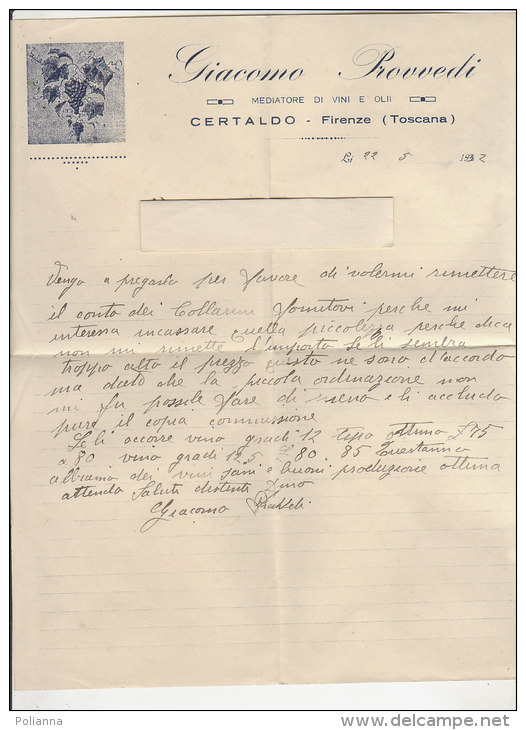 Giacomo Provvedi
MEDIATORE DI VINI E OLII
CERTALDO - Firenze (Toscana)
Lì 22 5 1932
Vengo a pregarla per favore di volermi rimettere
il conto dei Collarini fornitovi perche mi
interessa incassare quella piccolezza perche
non mi rimette l'importo se li sembra
troppo alto il prezzo questo ne sono d'accordo
ma dato che la piccola ordinazione non
mi fu possile fare di meno e li accludo
pure il copia commissione
Se li accorre vino gradi 12 tipo ottimo £ 75
a 80 vino gradi 12.5 £ 80. 85 Quest'anno
abbiamo dei vini sani e buoni produzione ottima
attendo Saluti distinti
Giacomo Provvedi
Polianna
delcampe.net